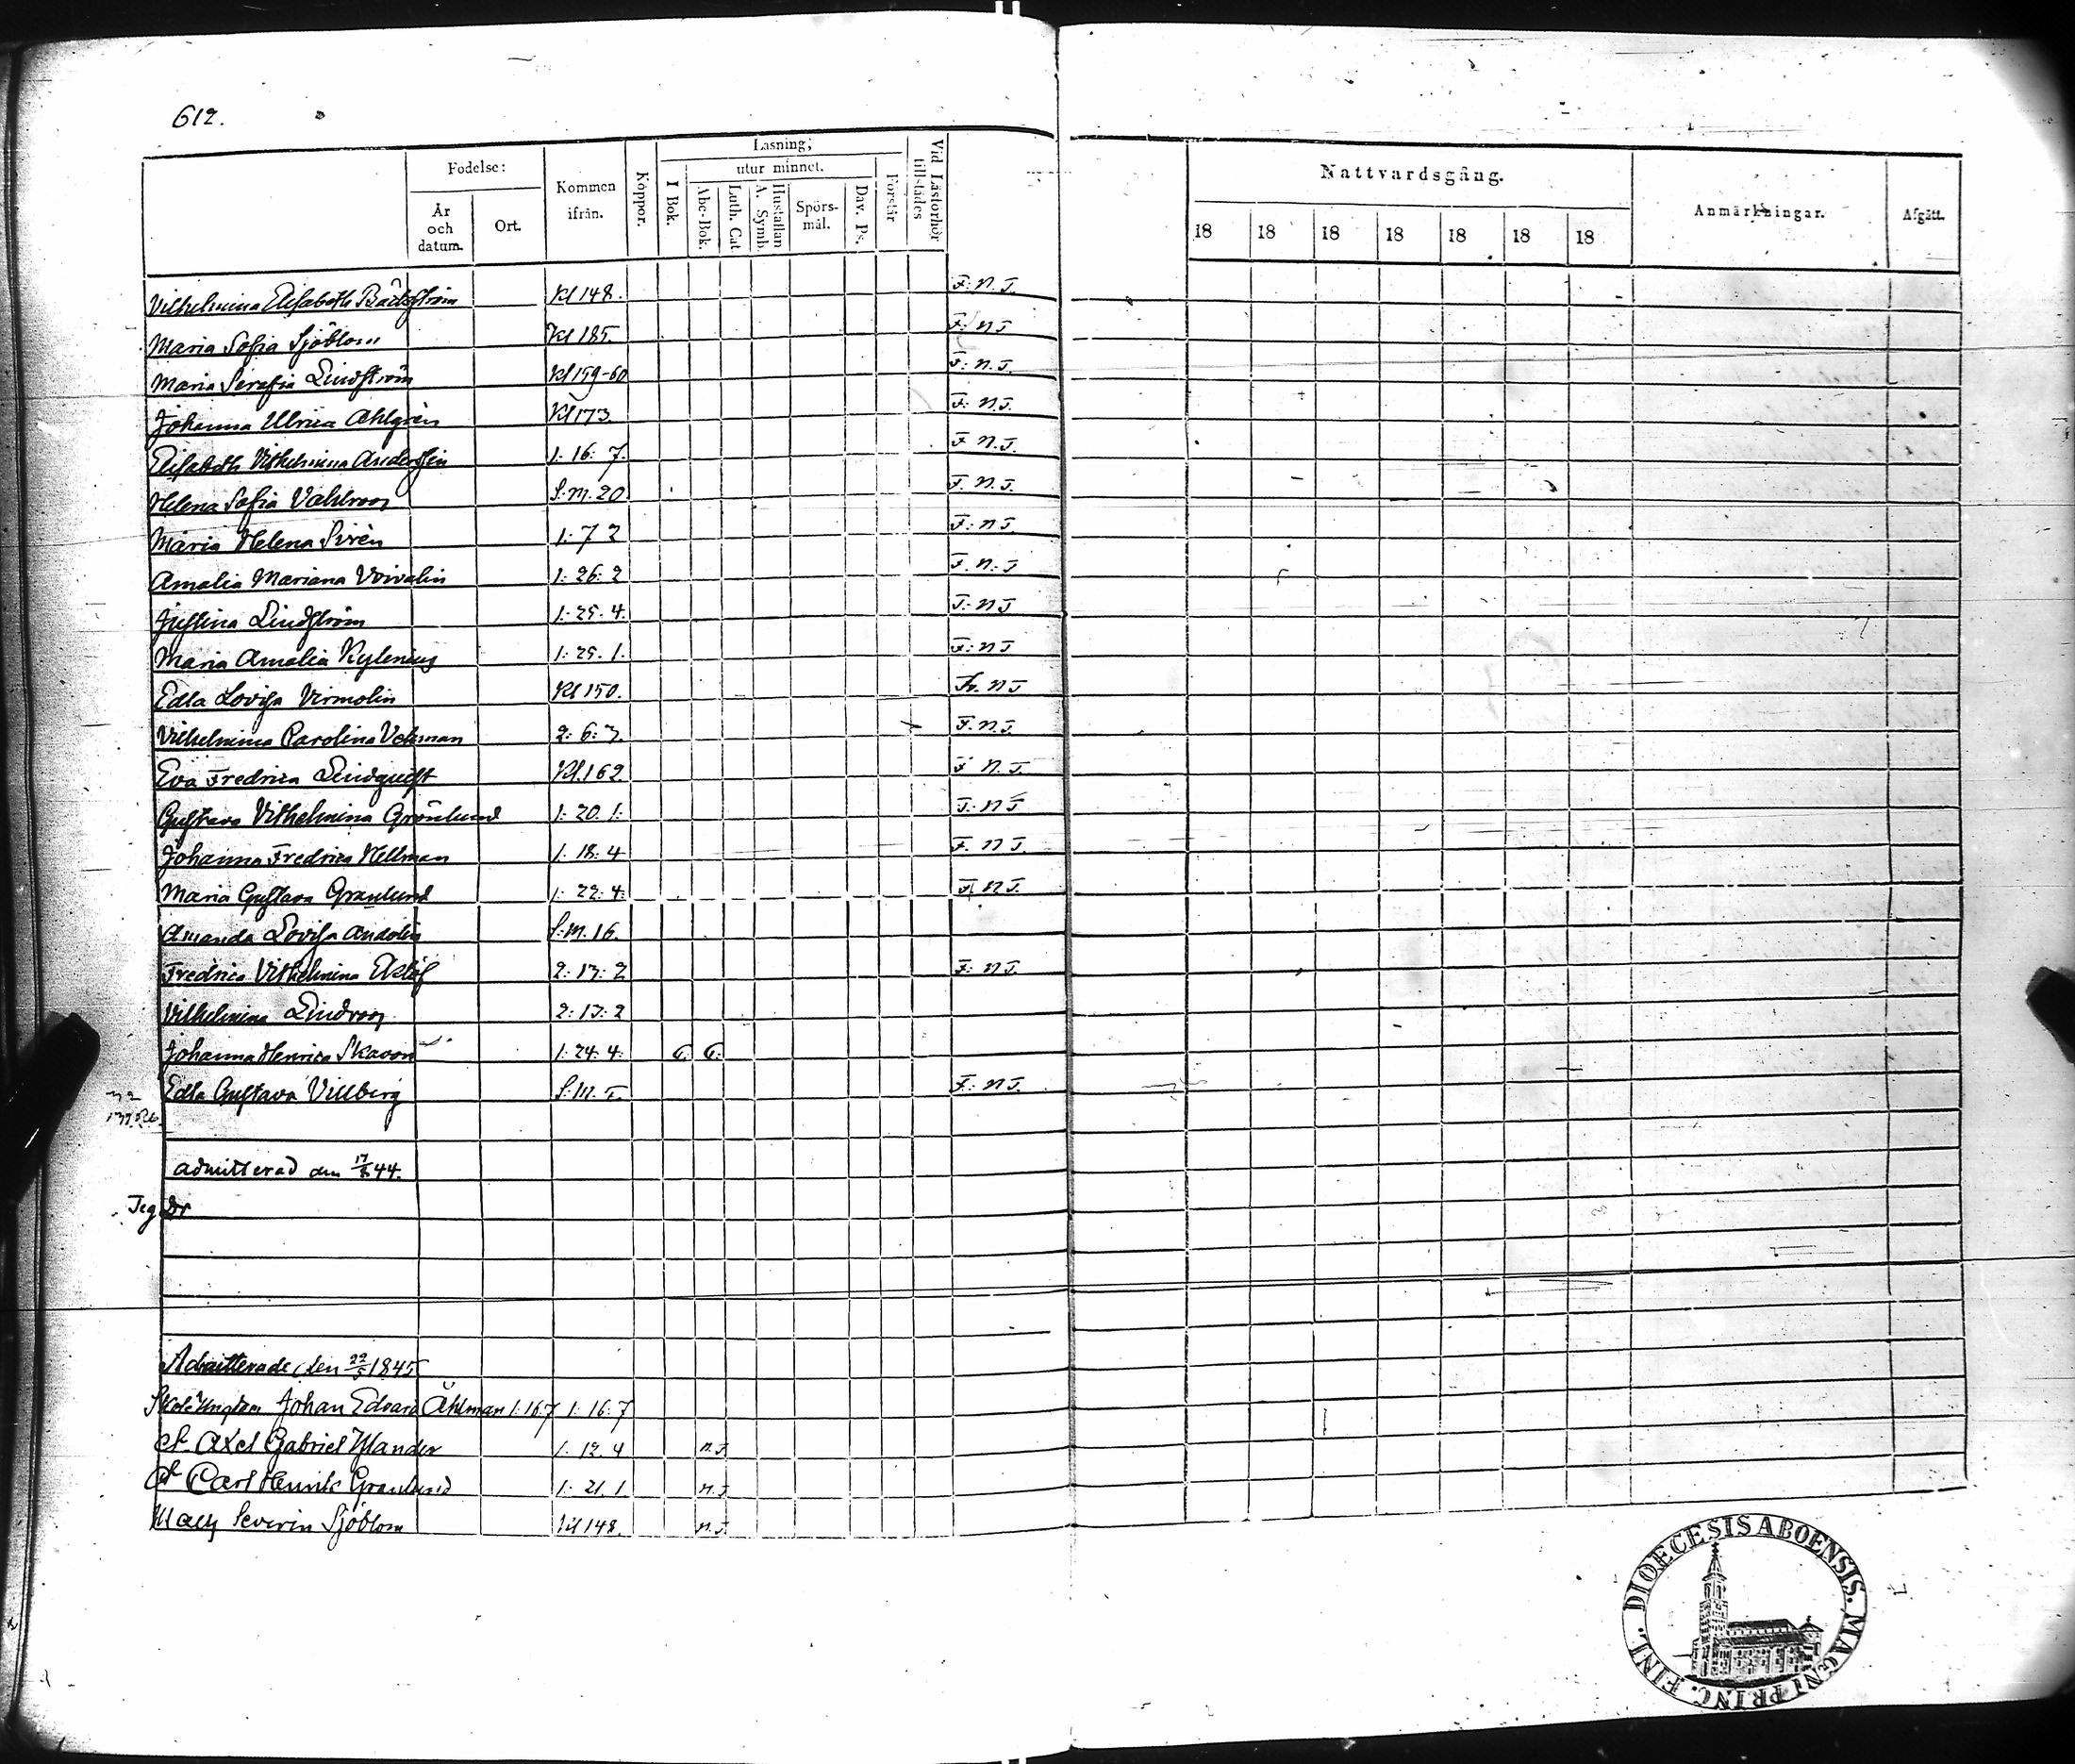 612.
Fodelse: Kommen ifrån. Koppor. Läsning; utur minnet. Vid Läsförhör tillstädes Nattvardsgång. Anmärkningar. Afgått.
År och datum. Ort. I Bok. Abc-Bok. Luth. Cat Hustaflan A. Symb. Spörs-mål. Dav. Ps. Förstår 18 18 18 18 18 18 18
Vilhelmina Elisabeth Bäckström Kl 148. F: N. T.
Maria Sofia Sjöblom Kl 185. F. N T
Maria Serafia Lindström Kl 159-60 F: N. T.
Johanna Ulrica Ahlgrén Kl 173. F: N. T.
Elisabeth Vilhelmina Andersin 1: 16: 7. F N. T.
Helena Sofia Vahlroos S. M. 20 F. N. T.
Maria Helena Sirén 1: 7 2 F: N T.
Amalia Mariana Voivalin 1: 26: 2 F. N. T
Justina Lindström 1: 25. 4. F: N T
Maria Amalia Kylenius 1: 25. 1. F: N T
Edla Lovisa Virmolin Kl 150. Fr. N T
Vilhelmina Carolina Vekman 2: 6: 7. F. N. T.
Eva Fredrica Lindquist Kl. 162 F N. T.
Gustava Vilhelmina Grönlund 1: 20. 1: F: N T
Johanna Fredrica Hellman 1. 18: 4 F. N T.
Maria Gustava Granlund 1: 22: 4: F N T.
Amanda Lovisa Andolin S. M. 16.
Fredrica Vilhelmina Eklöf 2: 17: 2 F: N T.
Vilhelmina Lindroos 2: 17: 2
Johanna Henrica Skavon 1: 24: 4:
Edla Gustava Villberg S. M. F. N T.
admitterad den 17/5 44.
Admitterade den 22/5 1845
Johan Edvard Åhlman 1: 16 7 1: 16: 7
Axel Gabriel Ylander 1. 12. 4 n. T
Carl Henrik Granlund 1: 21. 1 n. T
Severin Sjöblom Kl 148. n. T.
DIOECESIS ABOENSIS. MAGNI PRINC. FINL.